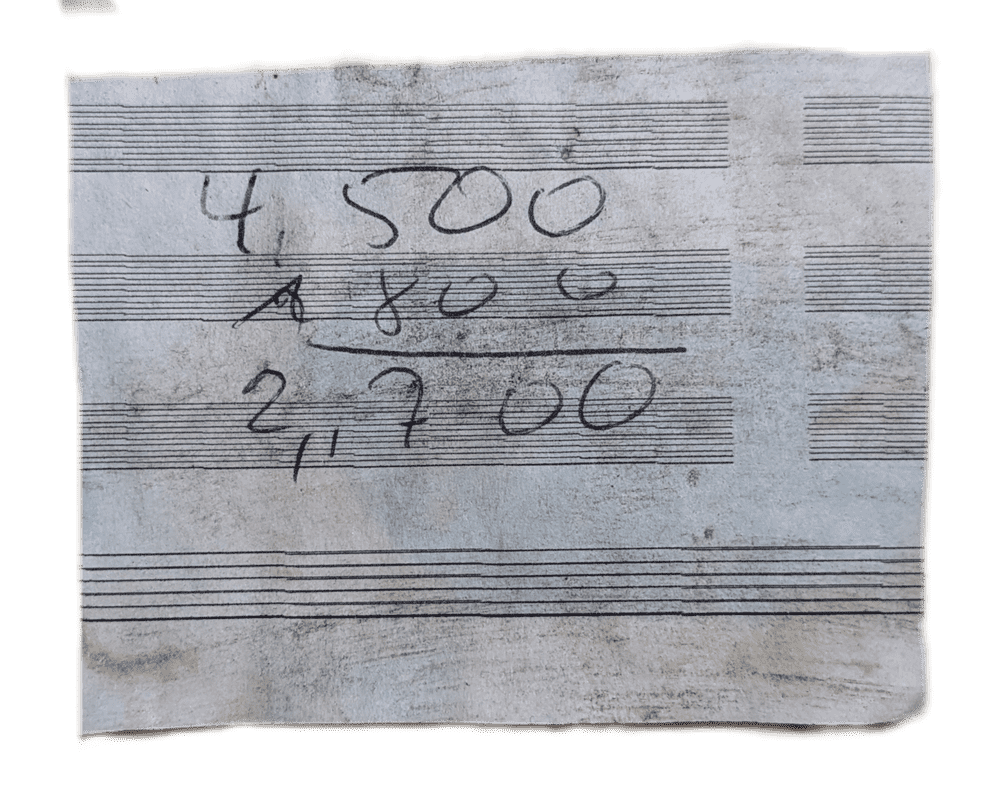 4,500
1800
2,700